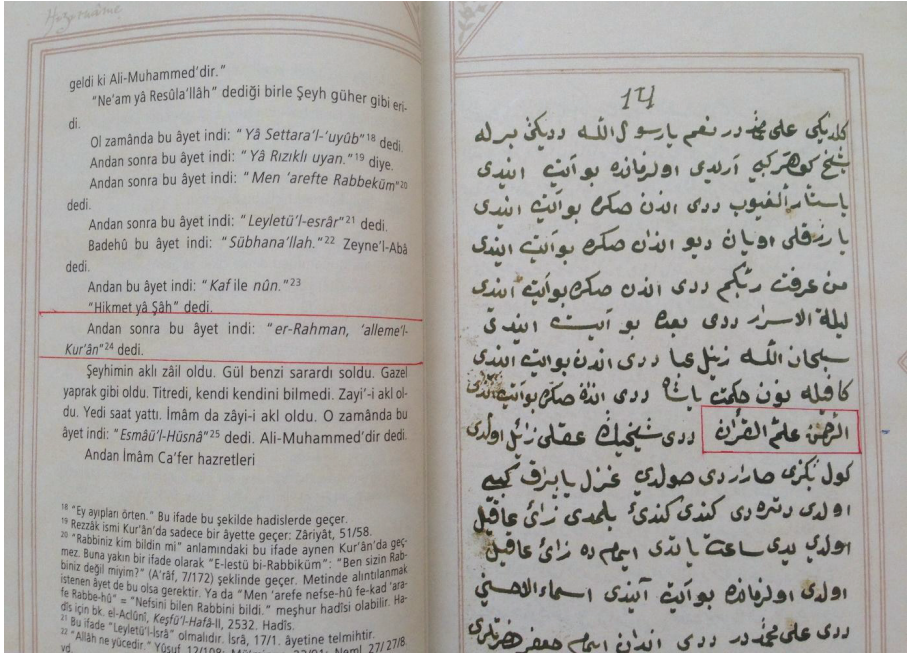 geldi ki Ali-Muhammed'dir."
"Ne'am yâ Resûla'llâh" dediği birle Şeyh güher gibi eri-
di.
Ol zamânda bu âyet indi: "Yâ Settara'l-'uyûb"18 dedi.
Andan sonra bu âyet indi: "Yâ Rızıklı uyan."19 diye.
Andan sonra bu âyet indi: "Men 'arefte Rabbeküm"20
dedi.
Andan sonra bu âyet indi: "Leyletü'l-esrâr"21 dedi.
Badehû bu âyet indi: "Sübhana'llah."22 Zeyne'l-Abâ
dedi.
Andan bu âyet indi: "Kaf ile nûn."23
"Hikmet yâ Şâh" dedi.
Andan sonra bu âyet indi: "er-Rahman, 'alleme'l-
Kur'ân"24 dedi.
Şeyhimin aklı zâil oldu. Gül benzi sarardı soldu. Gazel
yaprak gibi oldu. Titredi, kendi kendini bilmedi. Zayi'-i akl ol-
du. Yedi saat yattı. İmâm da zâyi-i akl oldu. O zamânda bu
âyet indi: "Esmâü'l-Hüsnâ"25 dedi. Ali-Muhammed'dir dedi.
Andan İmâm Ca'fer hazretleri
18 "Ey ayıpları örten." Bu ifade bu şekilde hadislerde geçer.
19 Rezzâk ismi Kur'ân'da sadece bir âyette geçer; Zâriyât, 51/58.
20 "Rabbiniz kim bildin mi" anlamındaki bu ifade aynen Kur'ân'da geç-
mez. Buna yakın bir ifade olarak "E-lestü bi-Rabbiküm": "Ben sizin Rab-
biniz değil miyim?" (A'râf, 7/172) şeklinde geçer. Metinde alıntılanmak
istenen âyet de bu olsa gerektir. Ya da "Men 'arefe nefse-hû fe-kad 'ara-
fe Rabbe-hû" = "Nefsini bilen Rabbini bildi." meşhur hadîsi olabilir. Ha-
dîs için bk. el-Aclûnî, Keşfü'l-Hafâ-II, 2532. Hadîs.
21 Bu ifade "Leyletü'l-İsrâ" olmalıdır. İsrâ, 17/1. âyetine telmihtir.
22 "Allâh ne yücedir." Yûsuf, 12/108; 27/8
vd.
14
كلديكى على محمد در نعم يارسول الله ديديكى برله
شيخ كوهر كبى اريدى اولزمانده بو آيت ايندى
ياستار الغيوب ددى اندن صكره بو آيت ايندى
يا رزقلى اويان ديو اندان صكره بو آيت ايندى
من عرفت ربكم ددى اندن صكره بو آيت اندى
ليلة الاسرار ددى بعده بو آيت ايندى
سبحان الله زينل عبا ددى اندن بو ايت ايندى
كافيله نون حكمت ياشاه ددى اندن صكره بو آيت اندى
الرحمن علم القرآن ددى شيخيمك عقلى زائل اولدى
كول بكزى صاراردى صولدى غزل يابراق كبى
اولدى دتره دى كندى كندئ بلمدى زائ عاقيل
اولدي يدى ساعت ياتدى ايمام ده زائ عاقيل
اولدى اولزمانده بو آيت آيندى اسماء الاحسنى
ددى على محمد در ددى اندان ايمام جعفر حضرتلرى